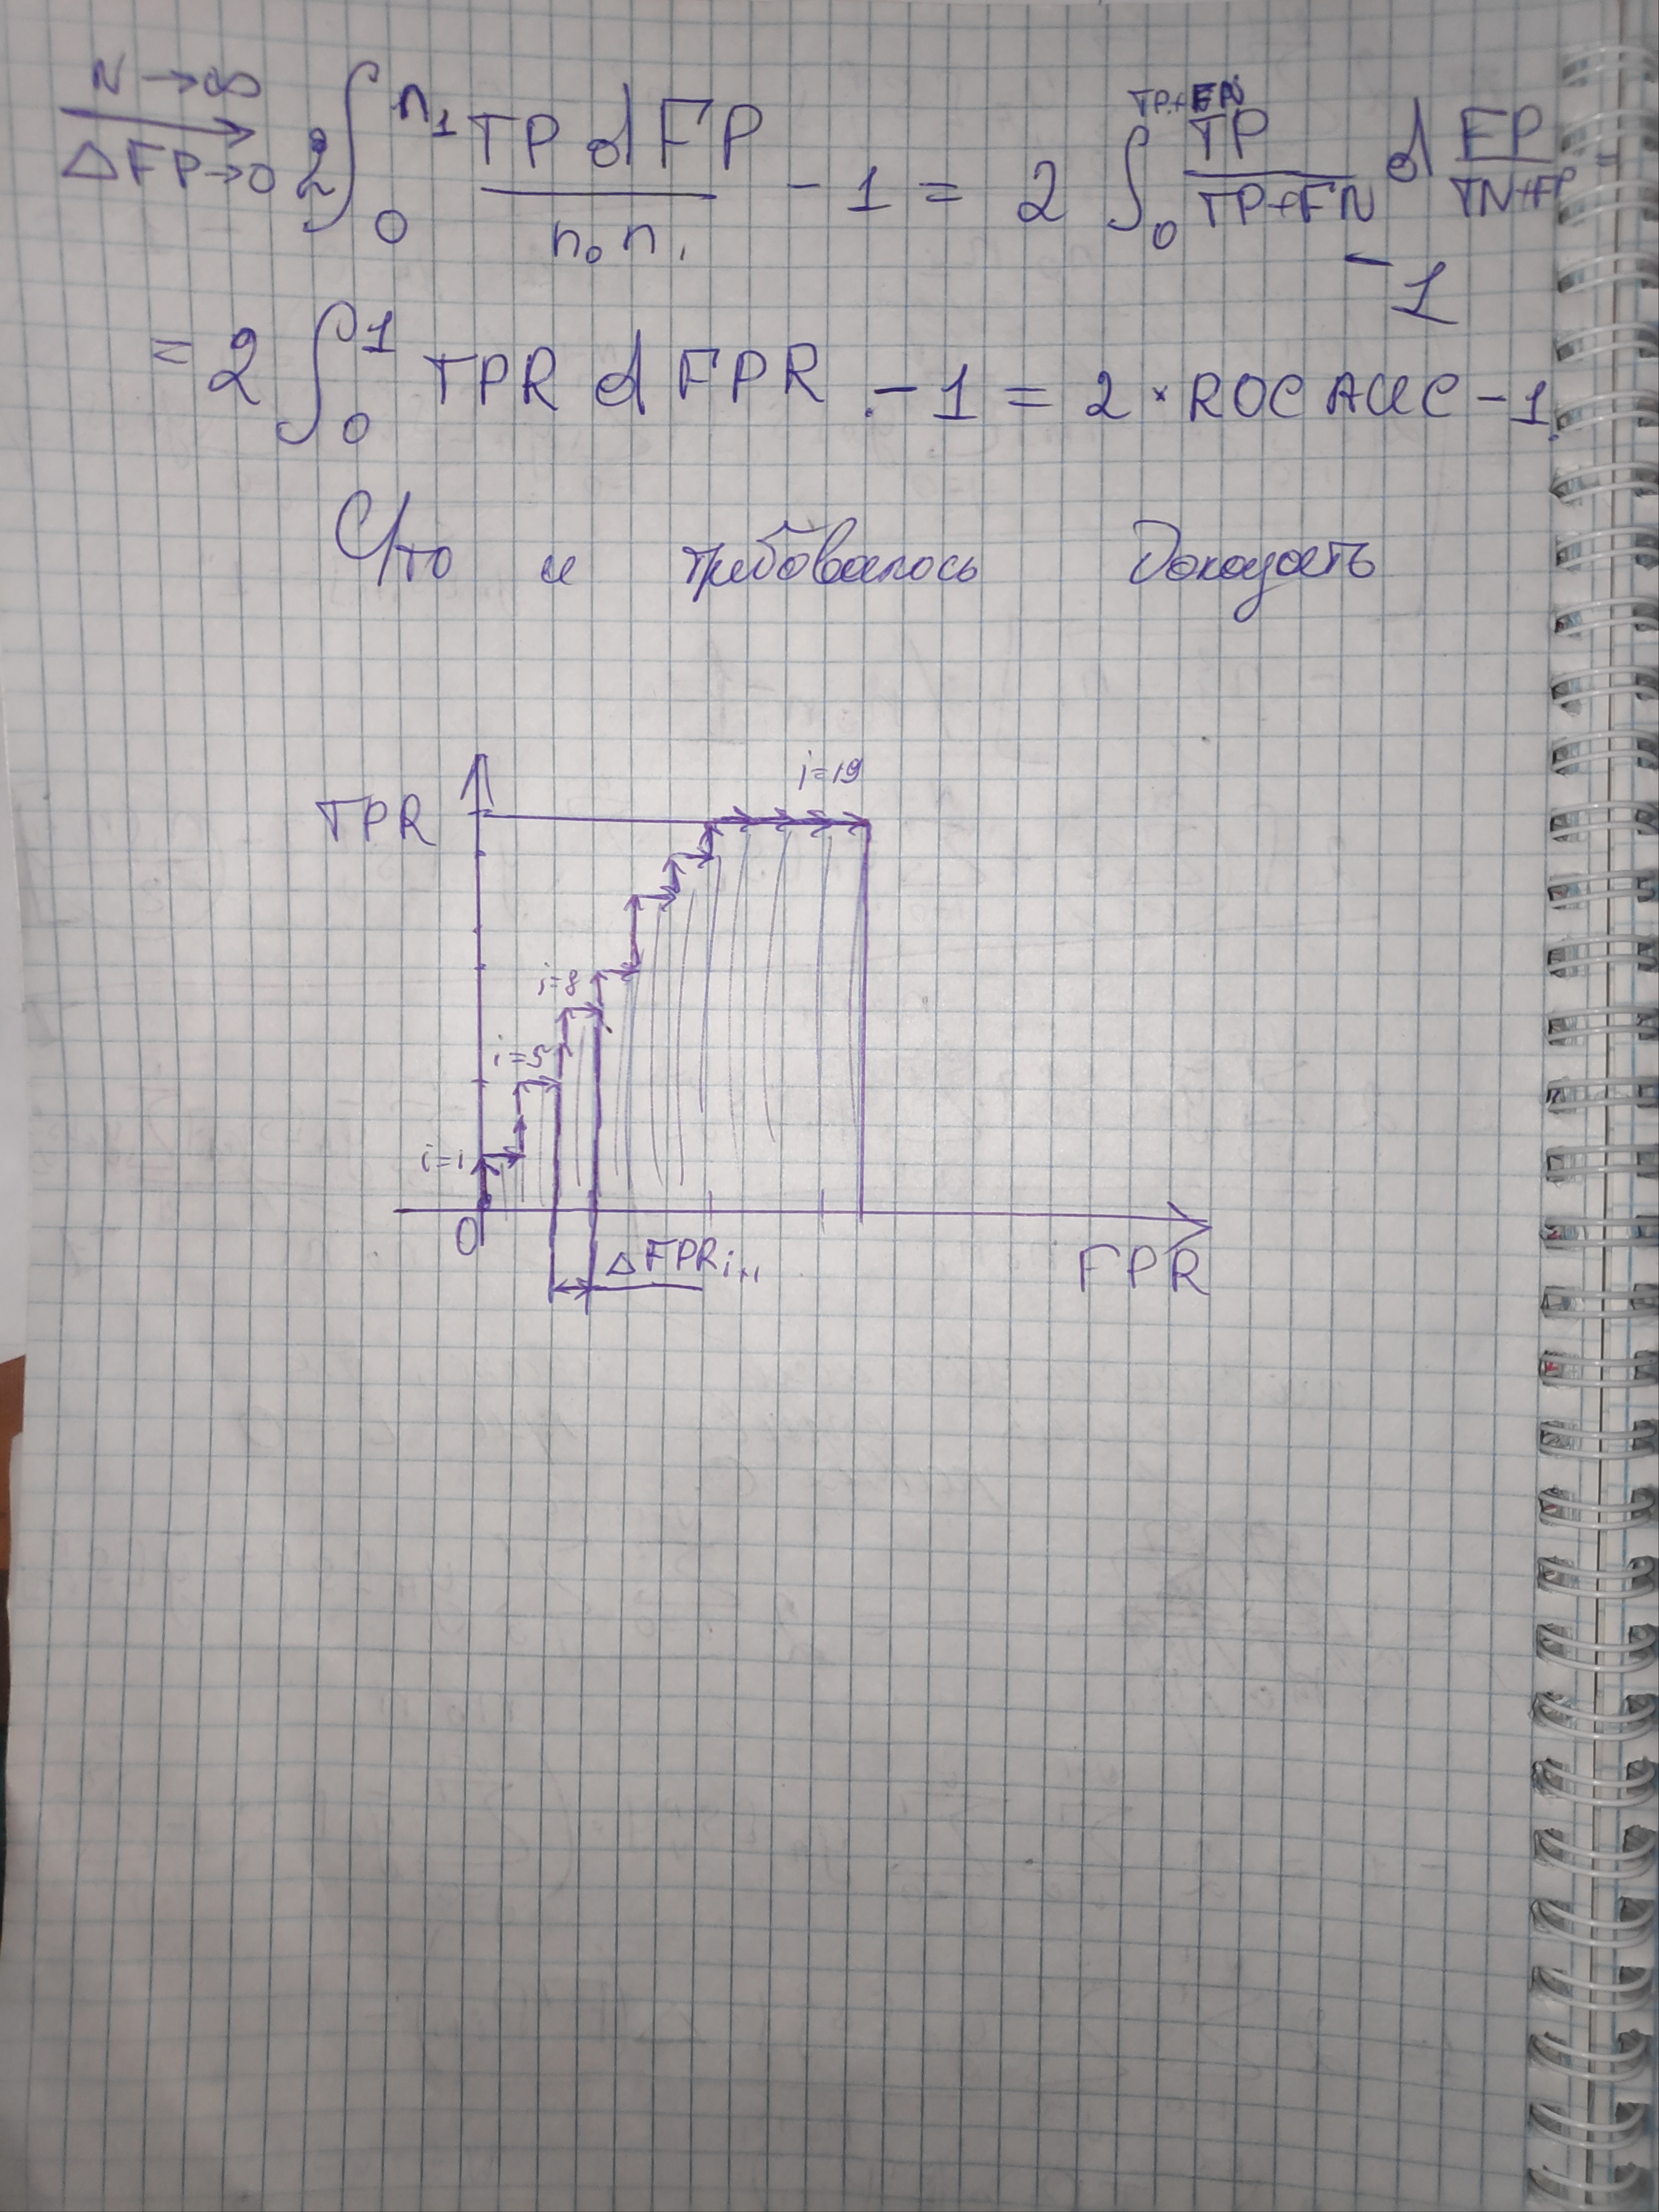 N → ∞
ΔFP → 0 2 ∫₀^{n₁} TP dFP / n₀ n₁ − 1 = 2 ∫₀^{TP+FN} TP / TP+FN d FP / TN+FP −1 =
= 2 ∫₀¹ TPR d FPR − 1 = 2 × ROC AUC − 1
Что и требовалось доказать
i=19
TPR
i=8
i=5
i=1
0
ΔFPRᵢ₊₁
FPR